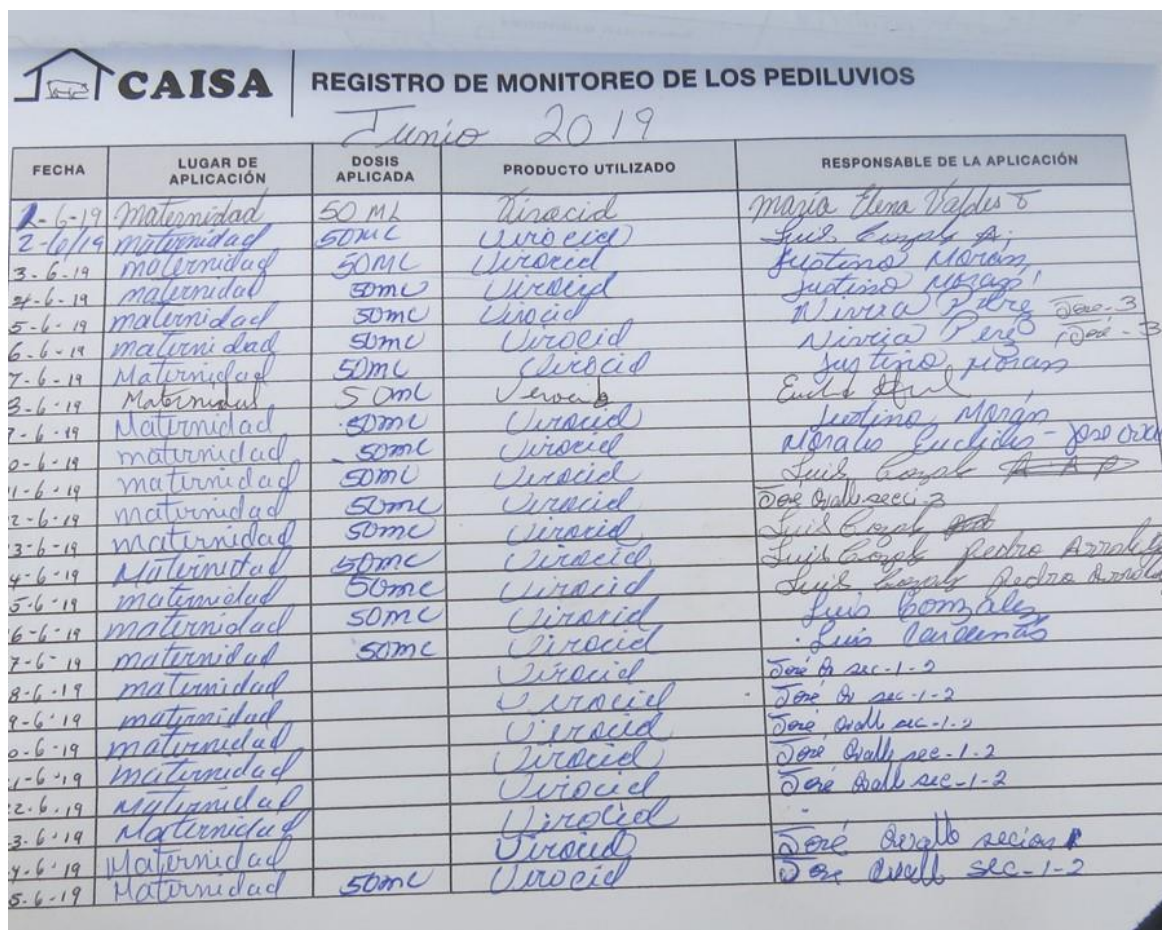 CAISA REGISTRO DE MONITOREO DE LOS PEDILUVIOS
Junio 2019
FECHA LUGAR DE APLICACIÓN DOSIS APLICADA PRODUCTO UTILIZADO RESPONSABLE DE LA APLICACIÓN
1-6-19 Maternidad 50 ML Virocid María Elena Valdes
2-6/19 maternidad 50ML Virocid Luis
3-6-19 maternidad 50ML Virocid Justino Morán
4-6-19 maternidad 50mL Virocid Justino Morán
5-6-19 maternidad 50mL Virocid José-3
6-6-19 maternidad 50mL Virocid José-3
7-6-19 Maternidad 50mL Virocid Justino Morán
-6-19 Maternidad 50mL
-6-19 Maternidad 50mL Virocid Justino Morán
0-6-19 maternidad 50mL Virocid Morales Euclides - José
1-6-19 maternidad 50mL Virocid Luis
2-6-19 maternidad 50mL Virocid José
3-6-19 maternidad 50mL Virocid Luis
4-6-19 Maternidad 50mL Virocid Luis Pedro
5-6-19 maternidad 50mL Virocid Luis Pedro
6-6-19 maternidad 50mL Virocid Luis Gonzales
7-6-19 maternidad 50mL Virocid Luis Cardenas
8-6-19 maternidad Virocid José sec-1-2
9-6-19 maternidad Virocid José sec-1-2
0-6-19 maternidad Virocid José Ovall sec-1-2
1-6-19 maternidad Virocid José Ovall sec-1-2
2-6-19 Maternidad Virocid José Ovall sec-1-2
3-6-19 Maternidad Virocid
4-6-19 Maternidad Virocid José
5-6-19 Maternidad 50mL Virocid José Ovall sec-1-2